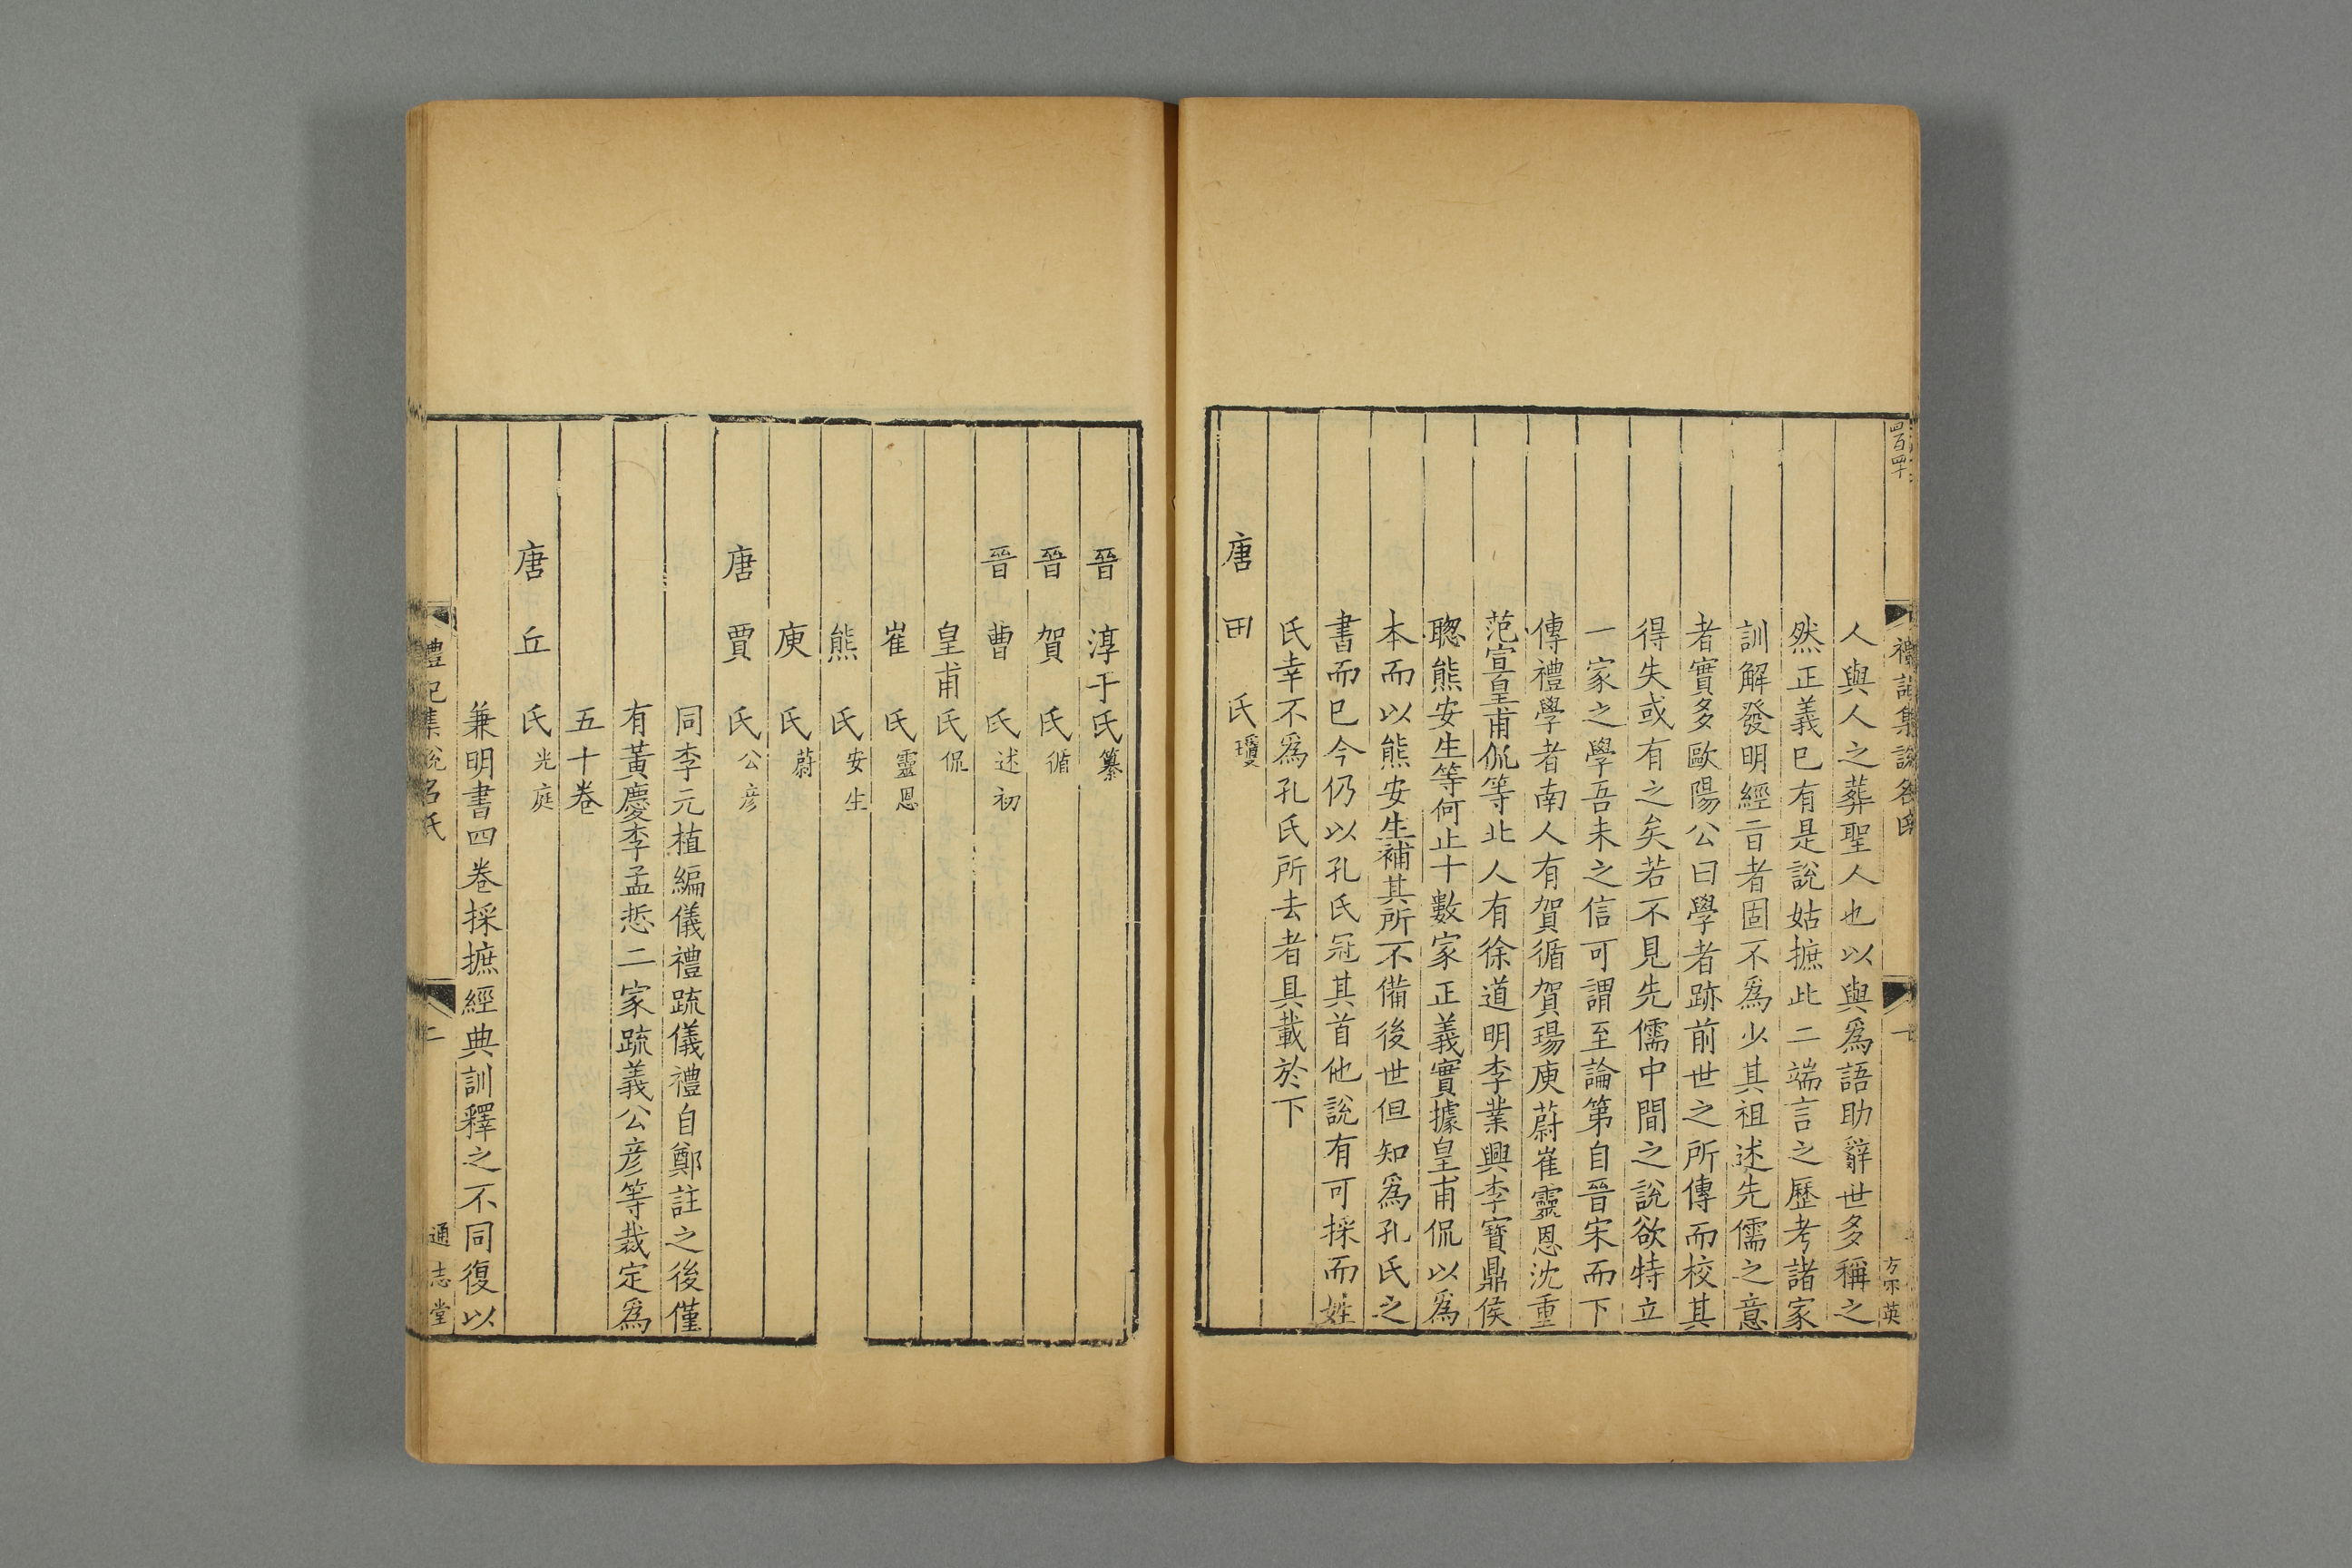 四百四十
禮記集說名氏
一
方宋英
人與人之葬聖人也以與爲語助辭世多稱之
然正義已有是說姑摭此二端言之歷考諸家
訓解發明經㫖者固不爲少其祖述先儒之意
者實多歐陽公曰學者跡前世之所傳而校其
得失或有之矣若不見先儒中間之說欲特立
一家之學吾未之信可謂至論第自晉宋而下
傳禮學者南人有賀循賀瑒庾蔚崔靈恩沈重
范宣皇甫侃等北人有徐道明李業興李寶鼎侯
聰熊安生等何止十數家正義實據皇甫侃以爲
本而以熊安生補其所不備後世但知爲孔氏之
書而已今仍以孔氏冠其首他說有可採而姓
氏幸不爲孔氏所去者具載於下
唐 田 氏瓊
晉 淳于氏纂
晉 賀 氏循
晉 曹 氏述初
皇甫氏侃
崔 氏靈恩
熊 氏安生
庾 氏蔚
唐 賈 氏公彦
同李元植編儀禮疏儀禮自鄭註之後僅
有黃慶李孟悊二家疏義公彦等裁定爲
五十卷
唐 丘 氏光庭
兼明書四卷採摭經典訓釋之不同復以
禮記集說名氏
二
通志堂